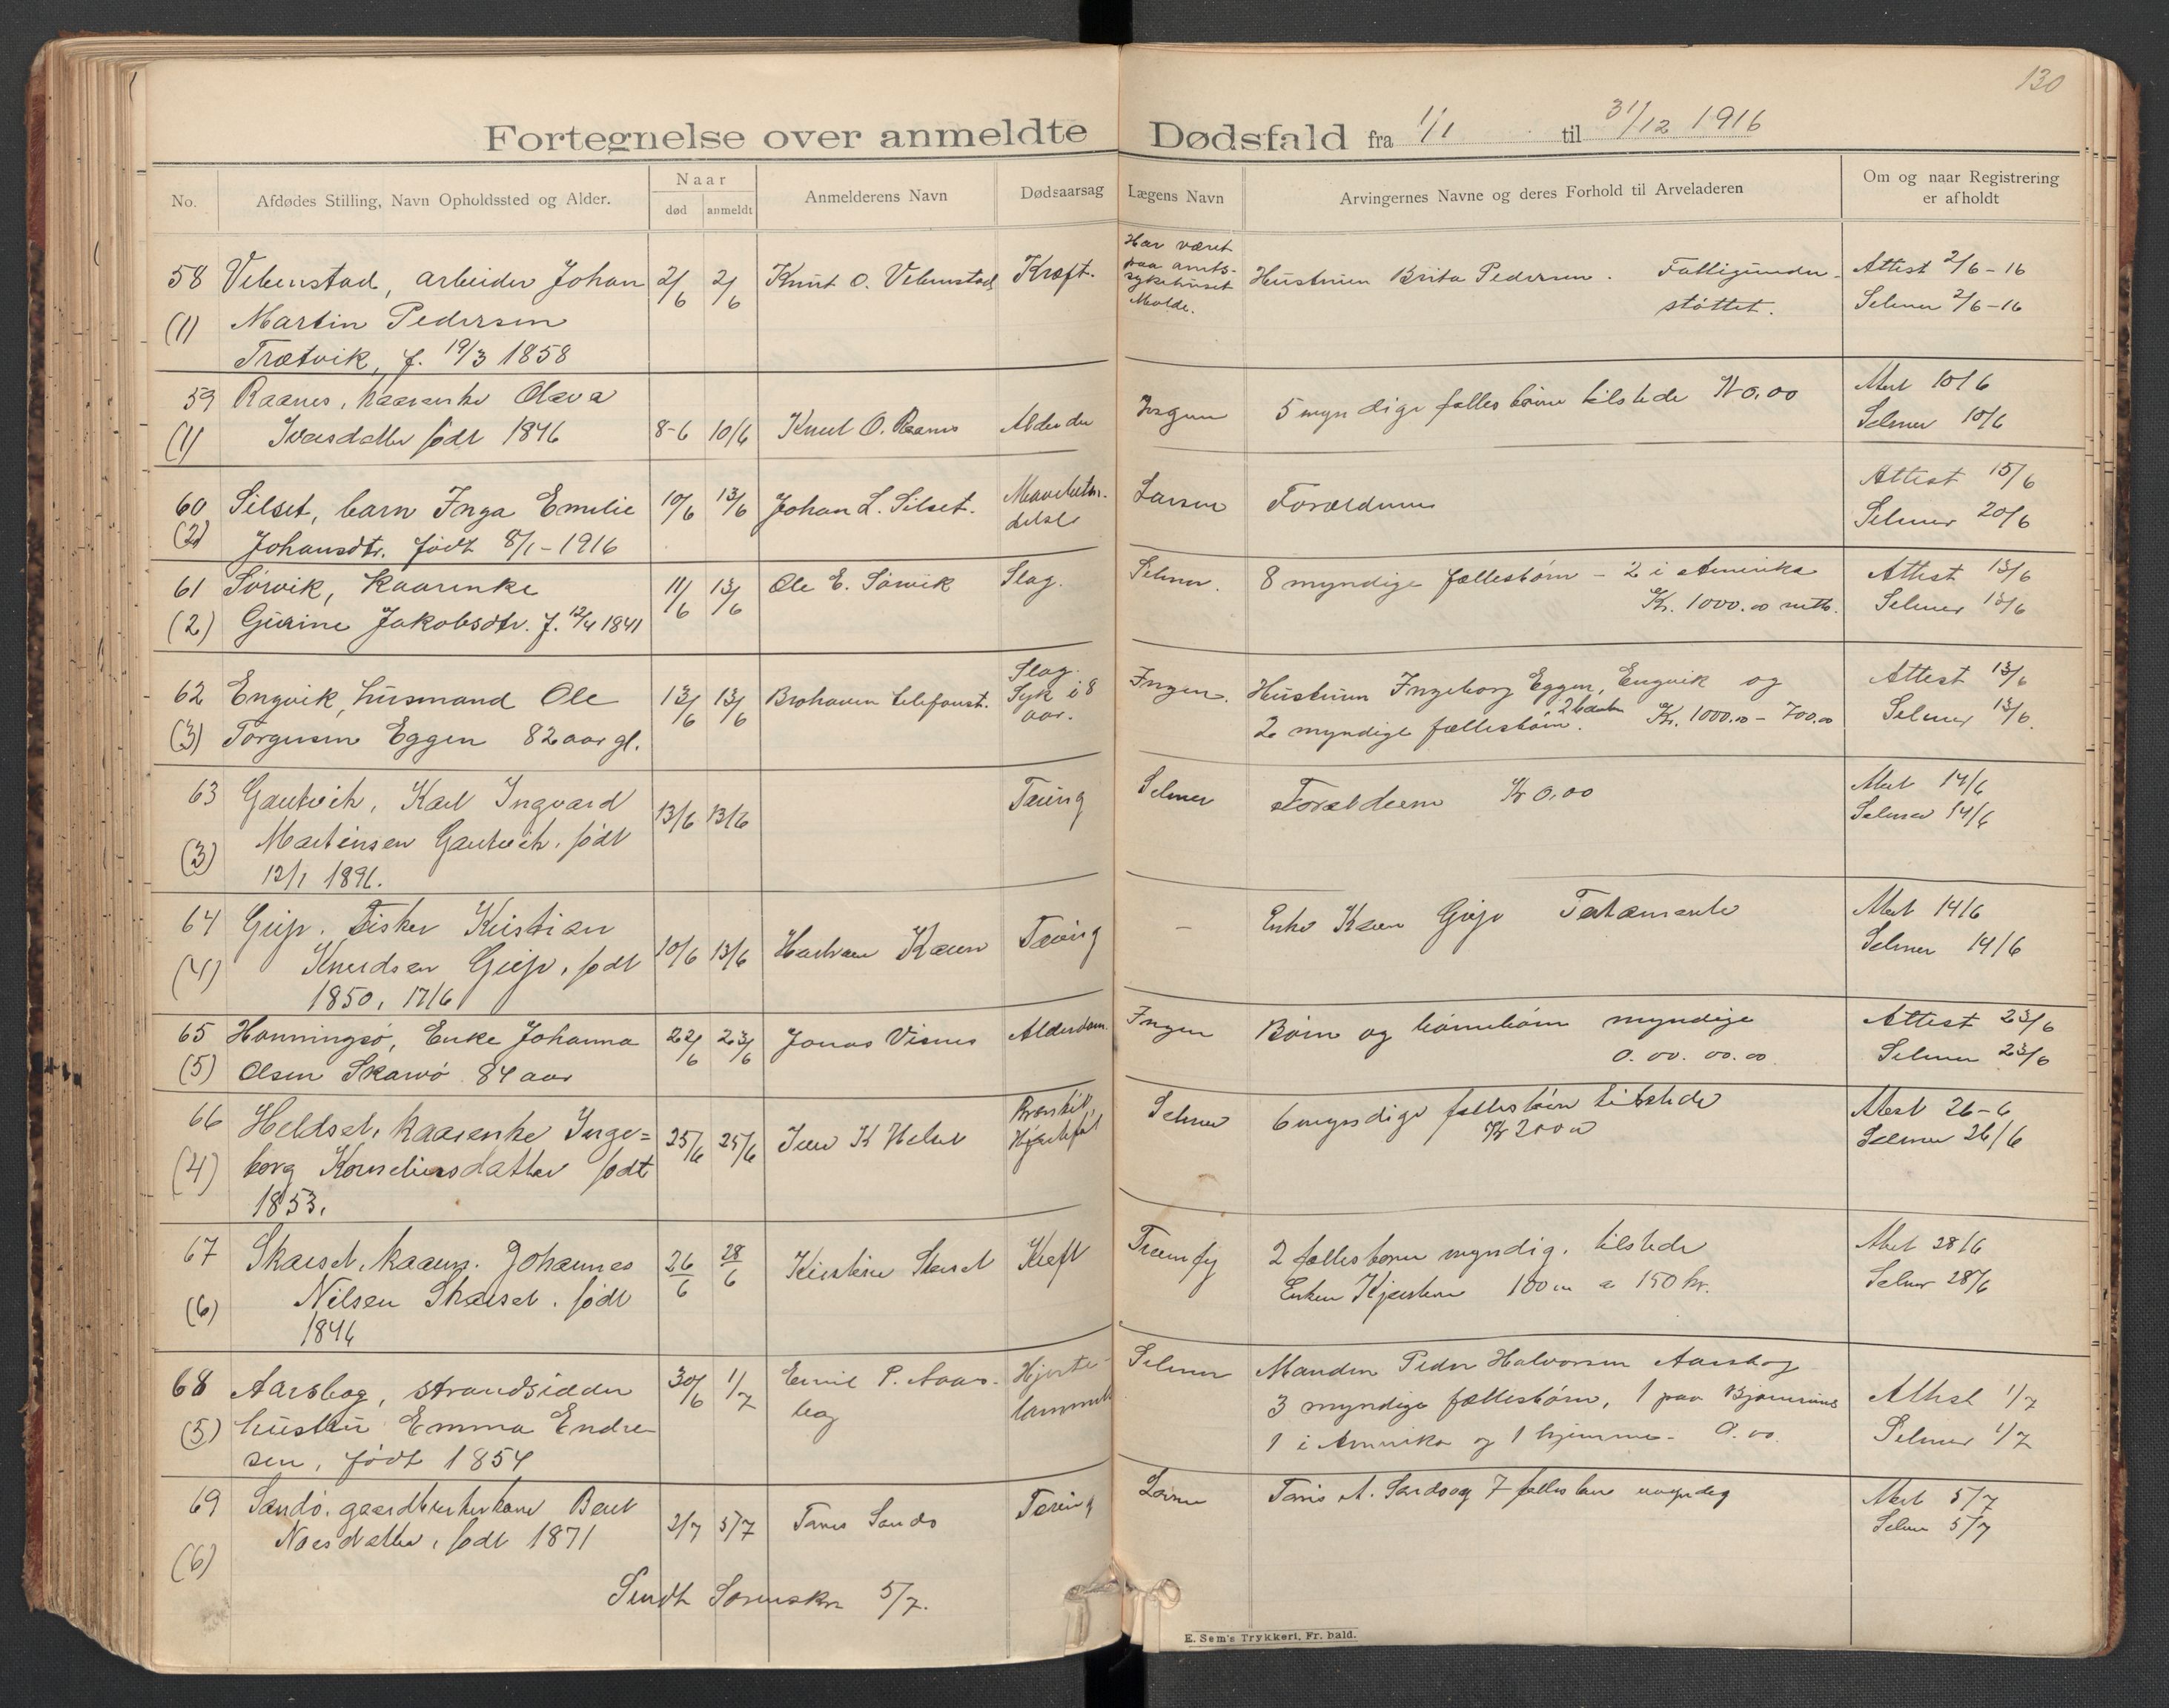 130
Fortegnelse over anmeldte Dødsfald fra 1/1 til 31/12 1916
No.
Afdødes Stilling, Navn Opholdssted og Alder.
Naar
død
anmeldt
Anmelderens Navn
Dødsaarsag
Lægens Navn
Arvingernes Navne og deres Forhold til Arveladeren
Om og naar Registrering
er afholdt
58 Vebenstad, arbeider Johan 2/6 2/6 Knut O. Vebenstad Kræft.
(1) Martin Pedersen
Trætvik, f. 19/3 1858
Har været
paa amts-
sykehuset
Molde.
Hustruen Brita Pedersen. Fattigunder-
støttet.
Attest 2/6-16
Selmer 2/6-16
59 Raanes, kaarenke Olava
(1) Iversdatter født 1846 8-6 10/6 Knut O. Raanes
Ingen 5 myndige fællesbörn tilstede Kr 0,00
Attest 10/6
Selmer 10/6
60 Silset, barn Inga Emilie 10/6 13/6 Johan L. Silset.
(2) Johansdtr. født 8/1-1916
Larsen Forældrene
Attest 15/6
Selmer 20/6
61 Sørvik, Kaarenke 11/6 13/6 Ole E. Sørvik Slag.
(2) Gurine Jakobsdtr. f. 12/4 1841
Selmer. 8 myndige fællesbörn - 2 i Amerika
Kr. 1000.00 netto.
Attest 13/6
Selmer 13/6
62 Engvik, husmand Ole 13/6 13/6 Brohaven telefonst.
(3) Torgersen Eggen 82 aar gl.
Slag.
Syk i 8
aar.
Ingen. Hustruen Ingeborg Eggen, Engvik og
2 myndige fællesbörn. Kr. 1000.00 - 700.00
Attest 13/6
Selmer 13/6.
63 Gautvik, Karl Ingvard 13/6 13/6 Tæring
(3) Martinsen Gautvik, født
12/1 1891.
Selmer Forældrene Kr 0,00
Attest 14/6
Selmer 14/6
64 Grip. Fisker Kristian
(4) Knudsen Grip, født 10/6 13/6 Karen Tæring
1850, 17/6
- Enke Karen Grip Testamente
Attest 14/6
Selmer 14/6
65 Honningsø, Enke Johanna 22/6 23/6 Jonas Visnes Alderdom.
(5) Olsen Skarvö 84 aar
Ingen Börn og börnebörn myndige
0.00. 00.00
Attest 23/6
Selmer 23/6
66 Heldset, kaarenke Inge=
(4) borg Korneliusdatter født 25/6 25/6
1853.
Selmer 6 myndige fællesbörn tilstede
Kr 200
Attest 26-6
Selmer 26/6
67 Skarset, kaarm. Johannes 26/6 28/6 Skarset Kræft
(6) Nilsen Skarset, født
1846
2 fællesbørn myndig. tilstede
Enken 100 a 150 kr.
Attest 28/6
Selmer 28/6
68 Aarsbog, strandsidder 30/6 1/7 Emil P. Aars-
bog
Hjerte-
lammelse
(5) hustru Emma Endre-
sen, født 1854
Selmer Manden Peder Halvorsen Aarsbog
3 myndige fællesbörn, 1 paa
1 i Amerika og 1 hjemme - 0.00
Attest 1/7
Selmer 1/7
69 Sandö, gaardbrukerkone Beret
(6) født 1871 2/7 5/7 Sandö Tæring
Larsen Sandö og 7 fællesbørn
Attest 5/7
Selmer 5/7
Sendt Sorenskr 5/7.
E. Sem's Trykkeri, Fr.hald.